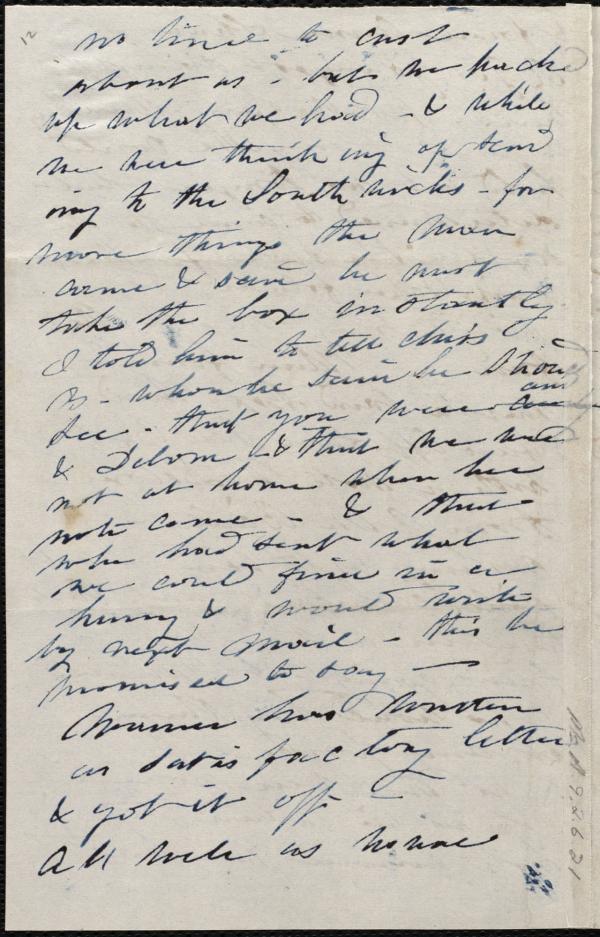 12
no time to cast
about us - but we packed
up what we had - & while
we were think ing of send
ing to the South - for
more things the man
came & said he must
take the box instantly
I told him to tell Miss
B - whom he said he should
see - that you were out
& Debora & that we were
not at home when her
note came - & that
we had sent what
we could find in a
hurry & would write
by next mail - this he
promised to say —
has written
a satisfactory letter
& got it off -
All well as usual
Ms.A.9.2.6.21